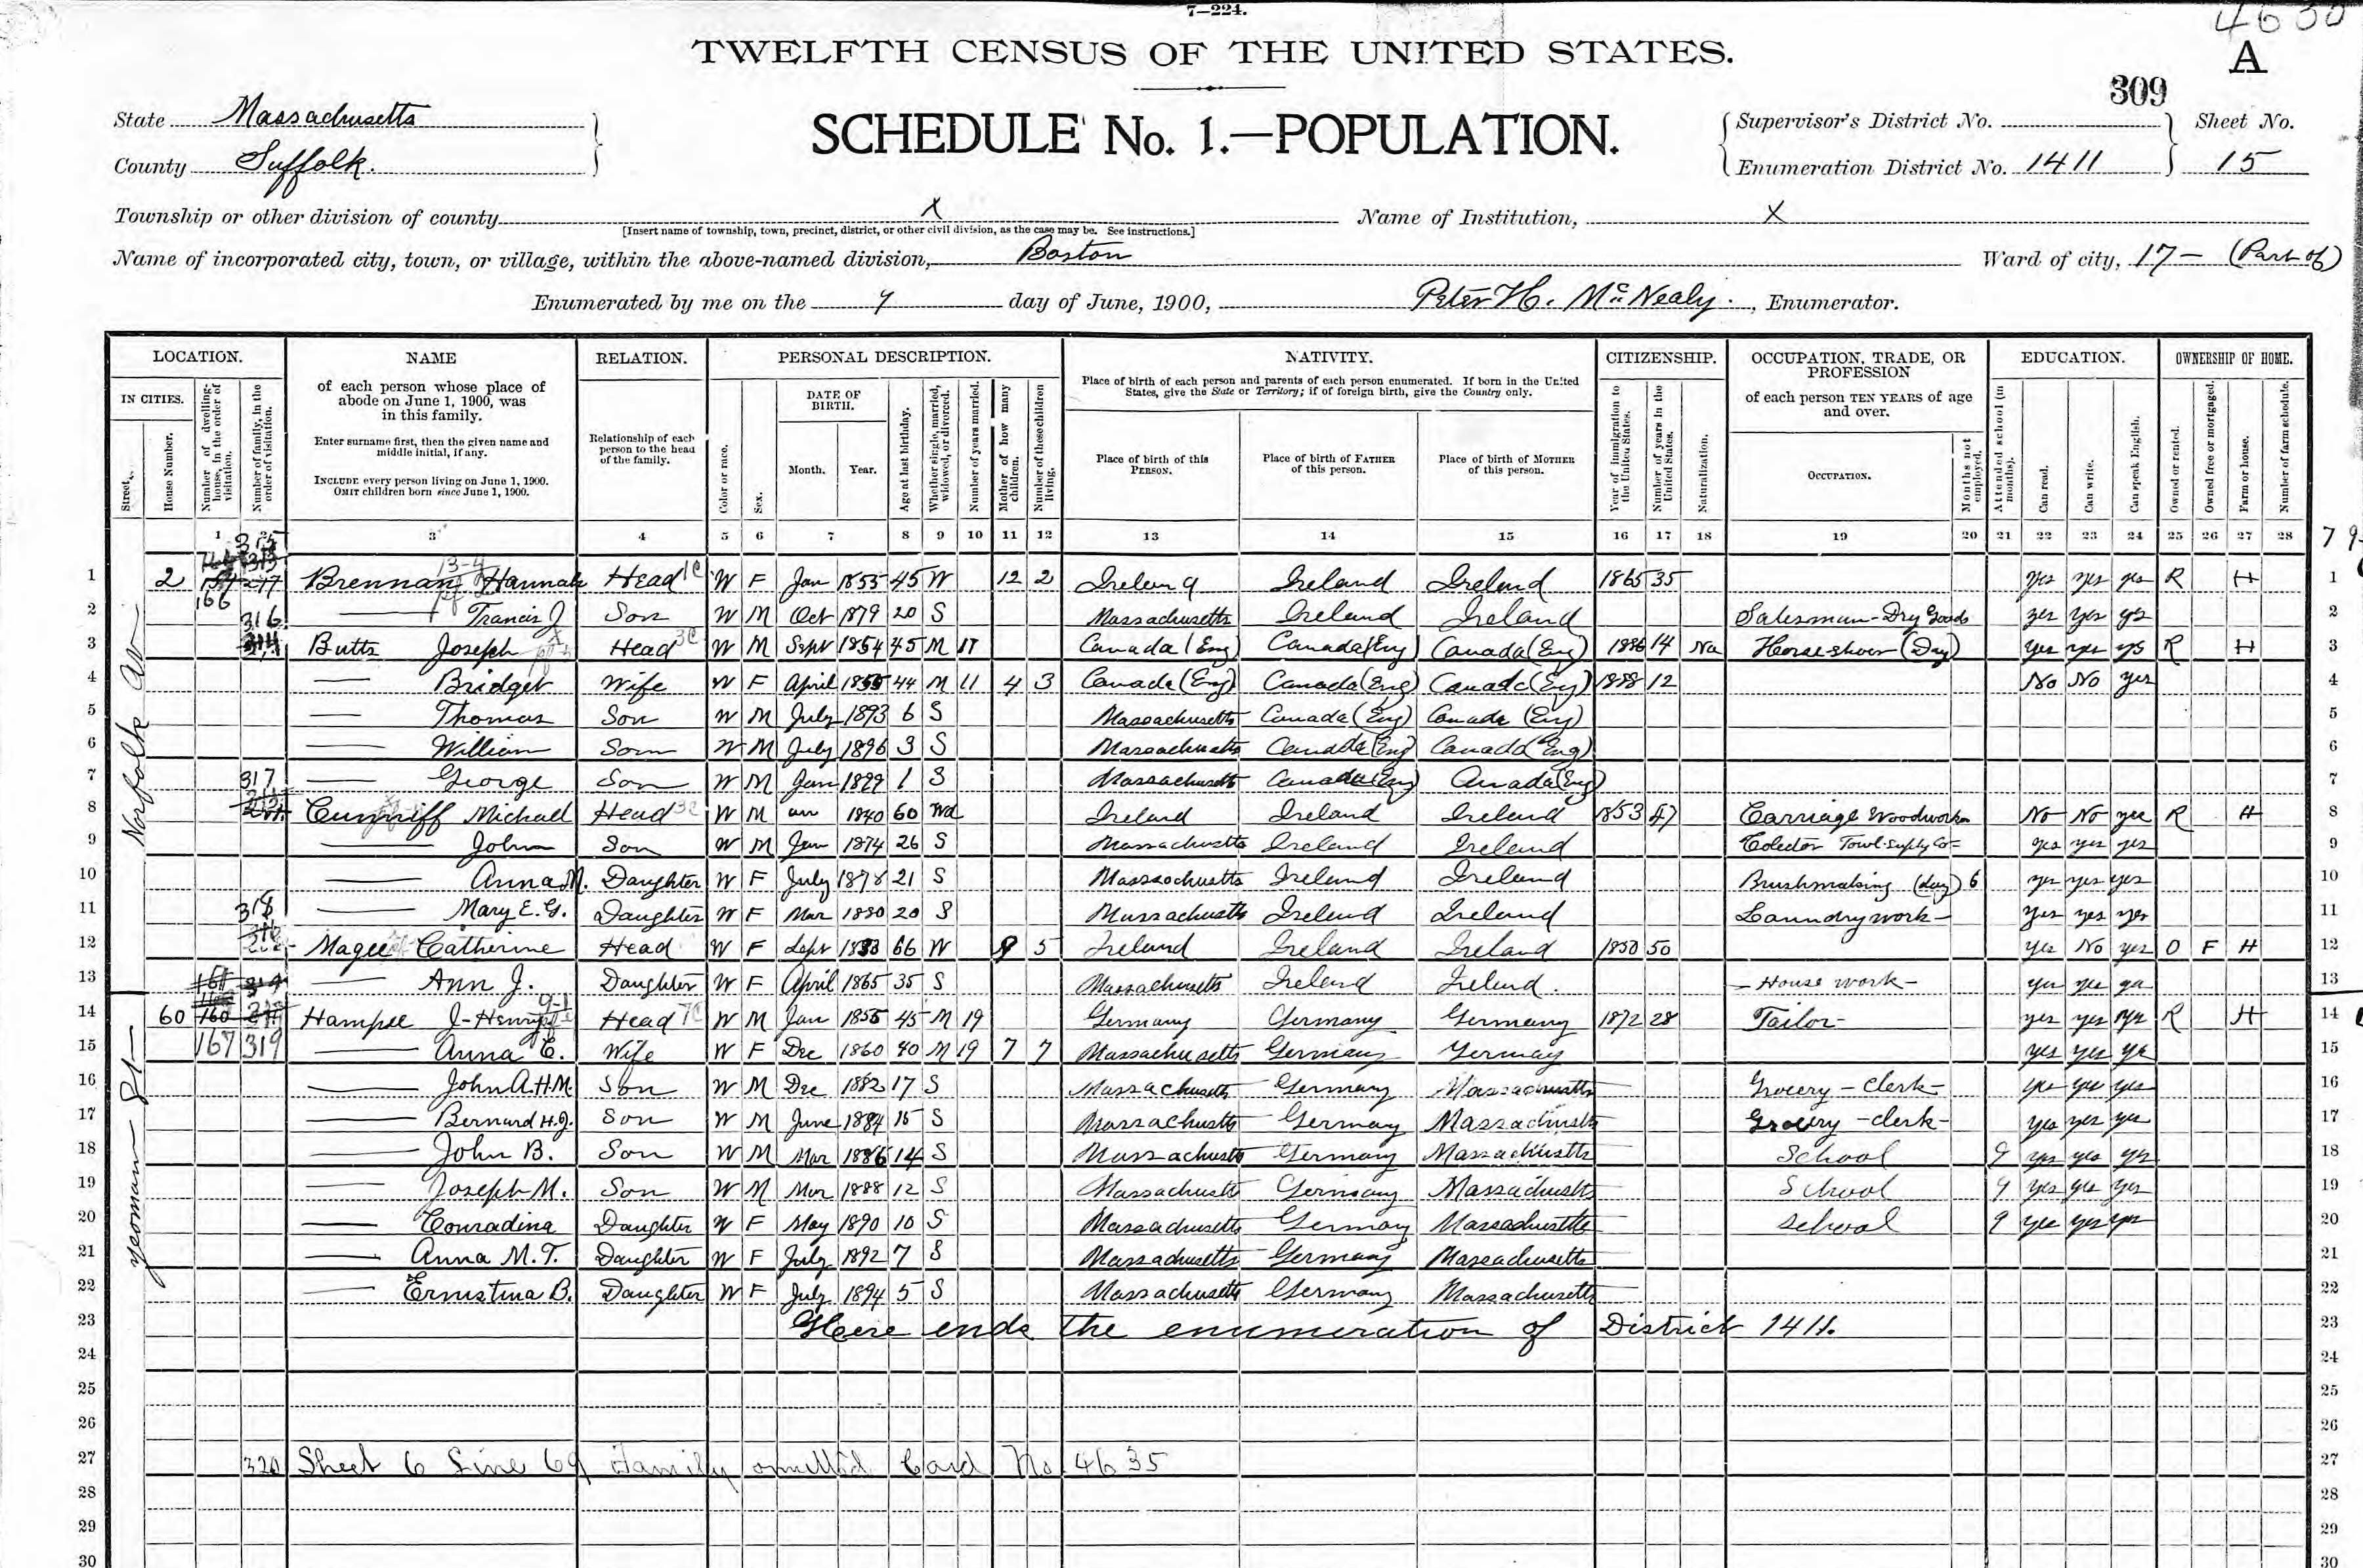 7—224.
4630
TWELFTH CENSUS OF THE UNITED STATES.
A
309
State Massachusetts
County Suffolk.
SCHEDULE No. 1.—POPULATION.
Supervisor's District No. Sheet No.
Enumeration District No. 1411 15
Township or other division of county X Name of Institution, X
[Insert name of township, town, precinct, district, or other civil division, as the case may be. See instructions.]
Name of incorporated city, town, or village, within the above-named division, Boston Ward of city, 17 — (Part of)
Enumerated by me on the 7 day of June, 1900, Peter H. McNealy., Enumerator.
LOCATION. NAME RELATION. PERSONAL DESCRIPTION. NATIVITY. CITIZENSHIP. OCCUPATION, TRADE, OR PROFESSION EDUCATION. OWNERSHIP OF HOME.
IN CITIES. Street. House Number. Number of dwelling-house, in the order of visitation. Number of family, in the order of visitation.
of each person whose place of abode on June 1, 1900, was in this family.
Enter surname first, then the given name and middle initial, if any.
INCLUDE every person living on June 1, 1900. OMIT children born since June 1, 1900.
Relationship of each person to the head of the family.
Color or race. Sex. DATE OF BIRTH. Month. Year. Age at last birthday. Whether single, married, widowed, or divorced. Number of years married. Mother of how many children. Number of these children living.
Place of birth of each person and parents of each person enumerated. If born in the United States, give the State or Territory; if of foreign birth, give the Country only.
Place of birth of this PERSON. Place of birth of FATHER of this person. Place of birth of MOTHER of this person.
Year of immigration to the United States. Number of years in the United States. Naturalization.
of each person TEN YEARS of age and over.
OCCUPATION. Months not employed.
Attended school (in months). Can read. Can write. Can speak English.
Owned or rented. Owned free or mortgaged. Farm or house. Number of farm schedule.
1 3 4 5 6 7 8 9 10 11 12 13 14 15 16 17 18 19 20 21 22 23 24 25 26 27 28
Norfolk Av
1 2 166 315 Brennan Hannah Head W F Jan 1855 45 W 12 2 Ireland Ireland Ireland 1865 35 yes yes yes R H 1
2 — Francis J Son W M Oct 1879 20 S Massachusetts Ireland Ireland Salesman - Dry Goods yes yes yes 2
3 316 Butts Joseph Head W M Sept 1854 45 M 11 Canada (Eng) Canada (Eng) Canada (Eng) 1886 14 Na Horseshoer (Day) yes yes yes R H 3
4 — Bridget Wife W F April 1855 44 M 11 4 3 Canada (Eng) Canada (Eng) Canada (Eng) 1888 12 No No yes 4
5 — Thomas Son W M July 1893 6 S Massachusetts Canada (Eng) Canada (Eng) 5
6 — William Son W M July 1896 3 S Massachusetts Canada (Eng) Canada (Eng) 6
7 — George Son W M Jan 1899 1 S Massachusetts Canada (Eng) Canada (Eng) 7
8 317 Cunniff Michael Head W M 1840 60 Wd Ireland Ireland Ireland 1853 47 Carriage Woodworker No No yes R H 8
9 — John Son W M Jan 1874 26 S Massachusetts Ireland Ireland Colector Towl-Supply Co- yes yes yes 9
10 — Anna M. Daughter W F July 1878 21 S Massachusetts Ireland Ireland Brushmaking (day) 6 yes yes yes 10
11 — Mary E. G. Daughter W F Mar 1880 20 S Massachusetts Ireland Ireland Laundry work — yes yes yes 11
12 318 Magee Catherine Head W F Sept 1833 66 W 9 5 Ireland Ireland Ireland 1850 50 yes No yes O F H 12
13 — Ann J. Daughter W F April 1865 35 S Massachusetts Ireland Ireland. — House work — yes yes yes 13
yeoman St —
14 60 Hampse J-Henry Head W M Jan 1855 45 M 19 Germany Germany Germany 1872 28 Tailor yes yes yes R H 14
15 167 319 — Anna E. Wife W F Dec 1860 40 M 19 7 7 Massachusetts Germany Germay yes yes yes 15
16 — John A.H.M. Son W M Dec 1882 17 S Massachusetts Germany Massachusetts Grocery - Clerk - yes yes yes 16
17 — Bernard H.J. Son W M June 1884 15 S Massachusetts Germany Massachusetts Grocery - clerk - yes yes yes 17
18 — John B. Son W M Mar 1886 14 S Massachusetts Germany Massachusetts School 9 yes yes yes 18
19 — Joseph M. Son W M Mar 1888 12 S Massachusetts Germany Massachusetts School 9 yes yes yes 19
20 — Conradina Daughter W F May 1890 10 S Massachusetts Germany Massachusetts School 9 yes yes yes 20
21 — Anna M. T. Daughter W F July 1892 7 S Massachusetts Germany Massachusetts 21
22 — Ernistina B. Daughter W F July 1894 5 S Massachusetts Germany Massachusetts 22
23 Here ends the enumeration of District 1411. 23
24 24
25 25
26 26
27 320 Sheet 6 Line 69 Family omitted Card No 4635 27
28 28
29 29
30 30